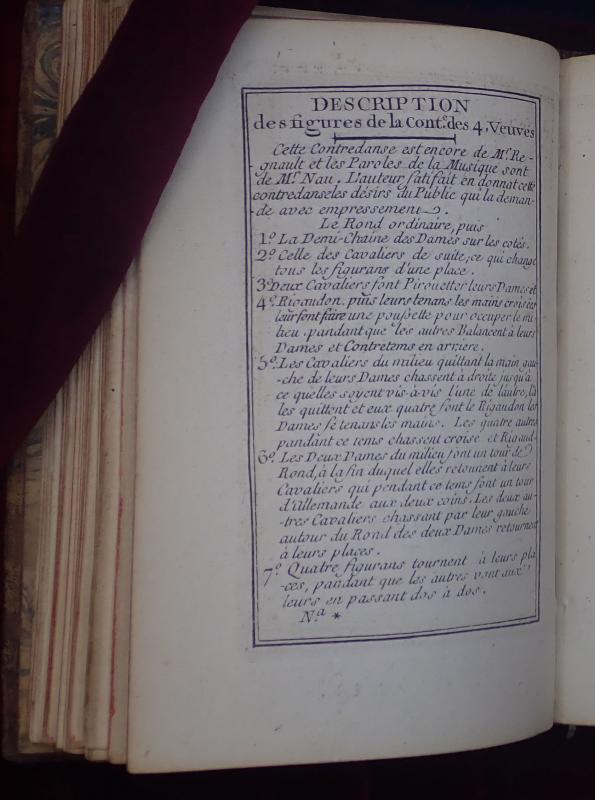 DESCRIPTION
des figures de la Cont.e des 4. Veuves
Cette Contredanse est encore de Mr. Re-
gnault et les Paroles de la Musique sont
de Mr. Nau. L'auteur satisfait en donnat cette
contredanseles désirs du Public qui la deman-
de avec empressement.
Le Rond ordinaire, puis
1.º La Demi-Chaine des Dames sur les cotés.
2.º Celle des Cavaliers de suite, ce qui change
tous les figurans d'une place.
3.º Deux Cavaliers font Pirouetter leurs Dames et
4.º Rigaudon. puis leurs tenans les mains croisées
leur font faire une poussette pour occuper le mi-
lieu. pandant que les autres Balancent à leurs
Dames et Contretems en arriere.
5.º Les Cavaliers du milieu quittant la main gau-
-che de leurs Dames chassent à droite jusqu'à
ce quelles soyent vis-à-vis l'une de l'autre, là
les quittent et eux quatre font le Rigaudon les
Dames se tenans les mains. Les quatre autres
pandant ce tems chassent croisé et Rigaud-
6.º Les Deux Dames du milieu font un tour de
Rond, à la fin duquel elles retounent à leurs
Cavaliers qui pendant ce tems font un tour
d'Allemande aux deux coins. Les deux au-
-tres Cavaliers chassant par leur gauche
autour du Rond des deux Dames retournent
à leurs places.
7.º Quatre figurans tournent à leurs pla
-ces, pandant que les autres vont aux
leurs en passant dos à dos.
N.a *